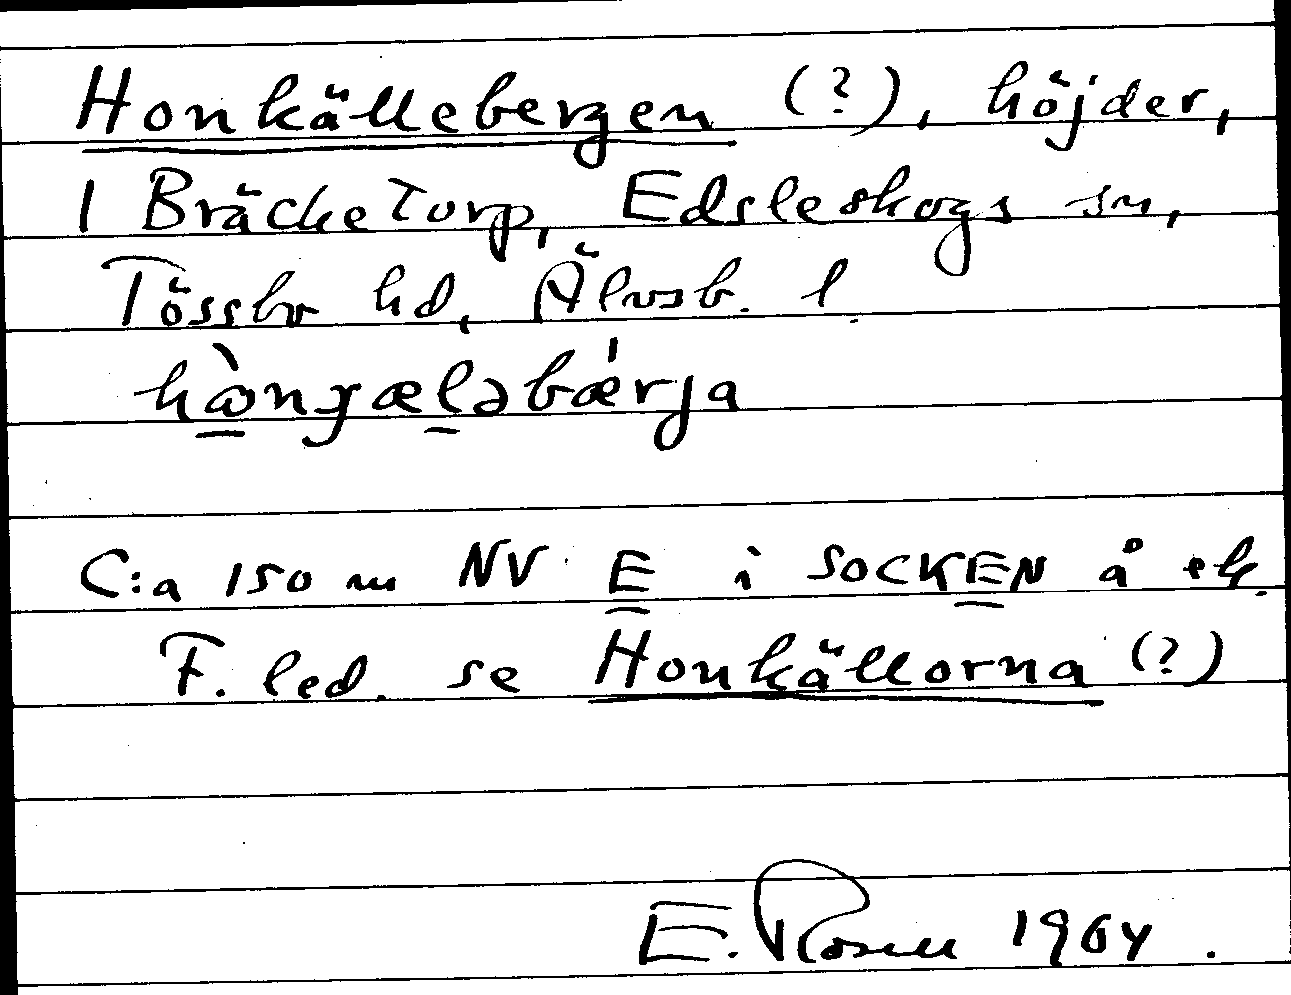 Honkällebergen (?), höjder,
1 Bräcketorp, Edsleskogs sn,
Tössbo hd, Älvsb. l.
C:a 150 m NV E i SOCKEN å ek.
F. led. se Honkällorna (?)
E. Rosell 1964.